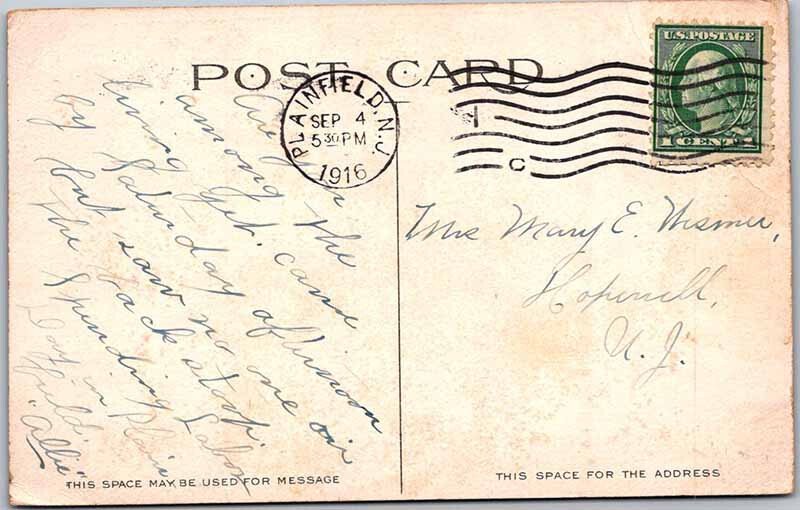 POST CARD
PLAINFIELD, N.J.
SEP 4
5 30 PM
1916
C
U.S. POSTAGE
1 CENT 1
Are you
among the
living yet. came
by Saturday afternoon
but saw no one on
the back stoop.
Spending Labor
Day in Plain
field"
"Allie"
Mrs Mary E. Wismer,
Hopewell,
N.J.
THIS SPACE MAY BE USED FOR MESSAGE
THIS SPACE FOR THE ADDRESS